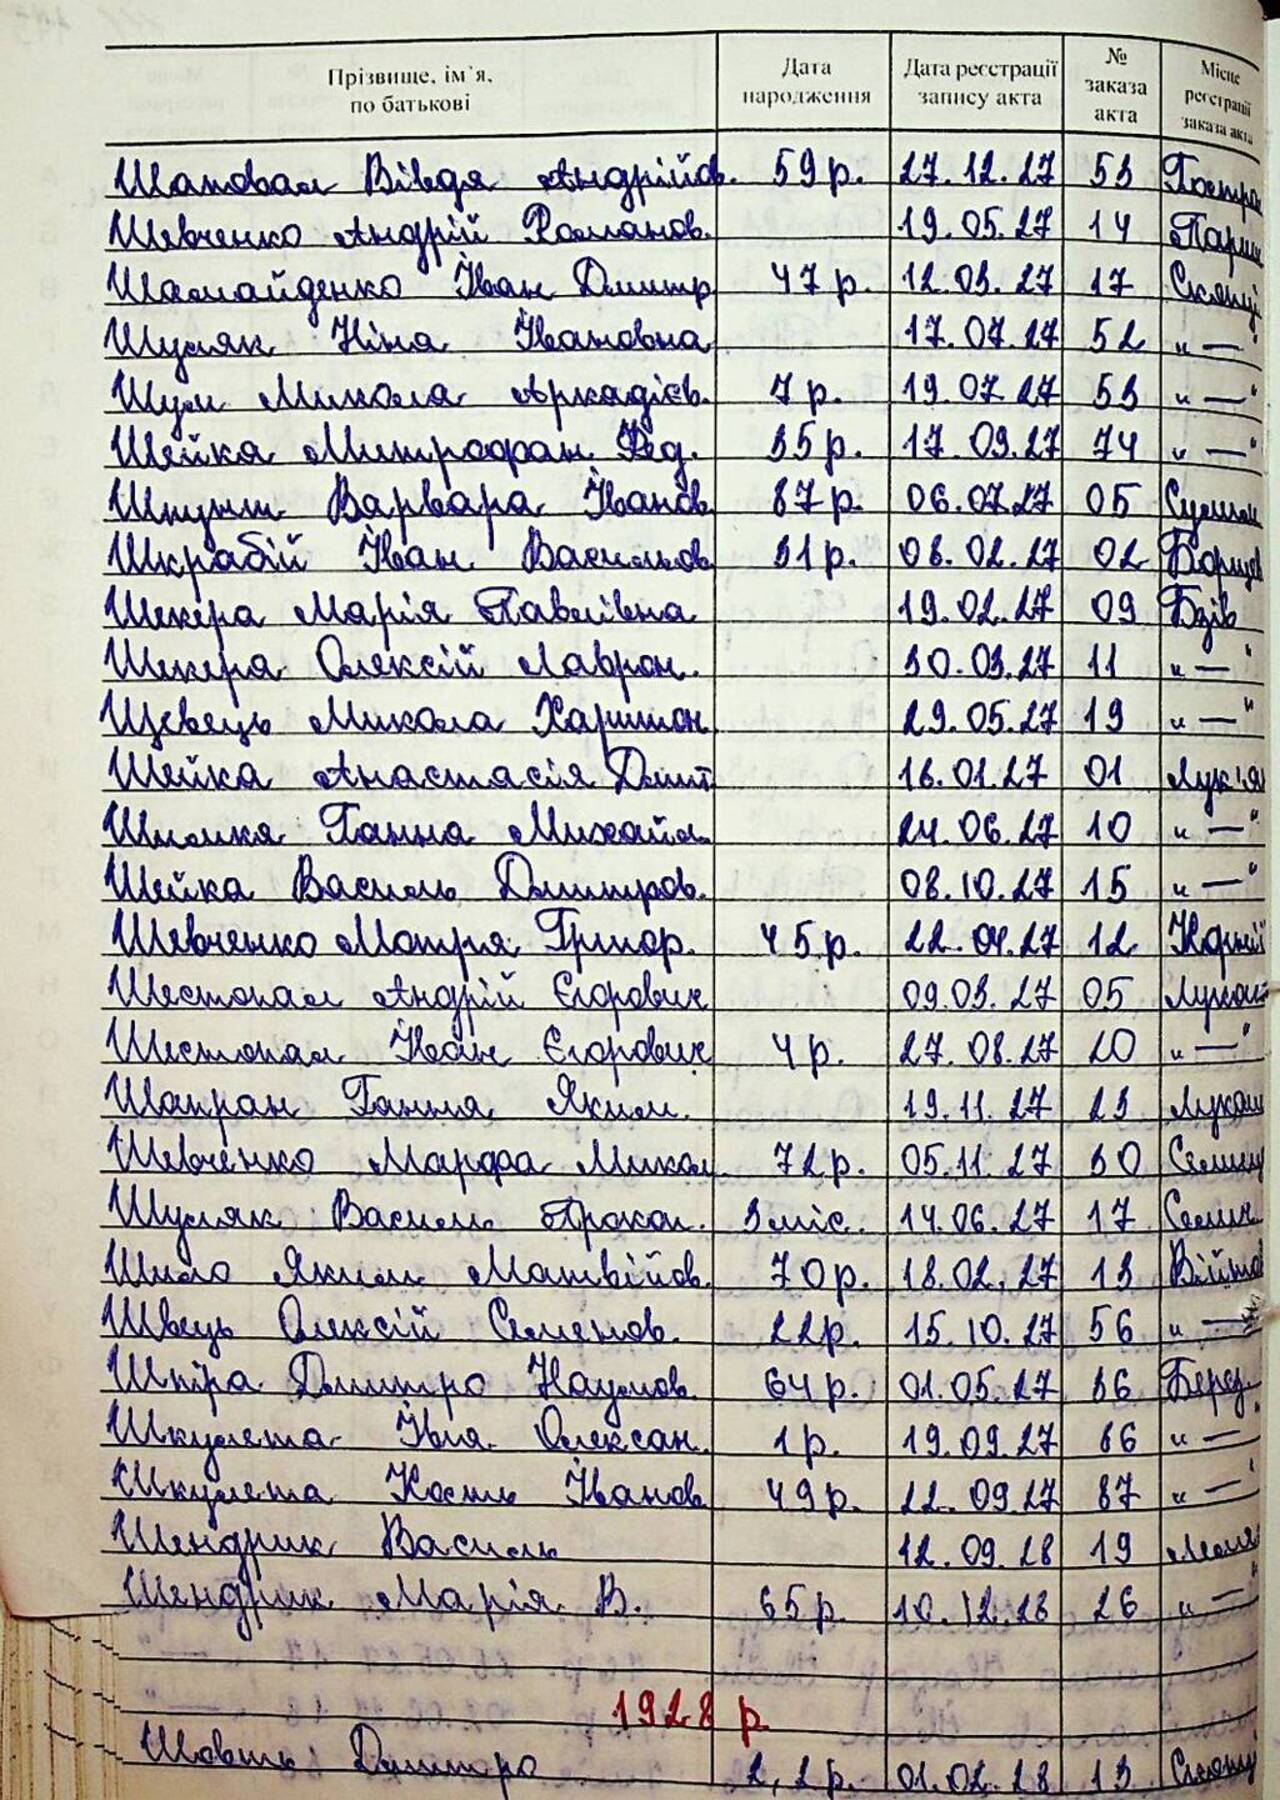 Прізвище, ім'я, по батькові Дата народження Дата реєстрації запису акта № заказа акта Місце реєстрації заказа акта
Шаповал Вівдя Андрійов. 59 р. 27.12.27 53
Шевченко Андрій Романов. 19.05.27 14
Шамайденко Іван Дмитр 47 р. 12.03.27 17
Шуляк Ніна Івановна 17.07.27 52 "—"
Шум Микола Аркадієв. 7 р. 19.07.27 53 "—"
Шейка Митрофан Фед. 35 р. 17.09.27 74 "—"
Варвара Іванов. 87 р. 06.07.27 05
Шкрабій Іван Васильов. 31 р. 08.02.27 02 Борщів
Шекера Марія Павлівна 19.02.27 09 Бзів
Шекера Олексій Лаврон. 30.03.27 11 "—"
Шевець Микола Харитон. 29.05.27 19 "—"
Шейка Анастасія Дмит 16.01.27 01 Лук'ян
Ганна Михайл. 24.06.27 10 "—"
Шейка Василь Дмитров. 08.10.27 15 "—"
Шевченко Мотря Григор. 45 р. 22.04.27 12
Шестопал Андрій Єгорович 09.03.27 05 Лукаш
Шестопал Іван Єгорович 4 р. 27.08.27 20 "—"
Шапран Ганна Яким. 19.11.27 23 Лукаш
Шевченко Марфа Микол 72 р. 05.11.27 30
Шуляк Василь Прокоп. 3 міс. 14.06.27 17
Шило Яким Матвійов. 70 р. 18.02.27 13 Війтов
Швець Олексій Семенов. 22 р. 15.10.27 56 "—"
Шкіра Дмитро Наумов. 64 р. 01.05.27 36 Берез.
Шкулета Ілля Олексан. 1 р. 19.09.27 86 "—"
Шкулета Кость Іванов. 49 р. 22.09.27 87 "—"
Шендрик Василь 12.09.28 19
Шендрик Марія В. 65 р. 10.12.28 26 "—"
1928 р.
Дмитро 2,2 р. 01.02.28 13